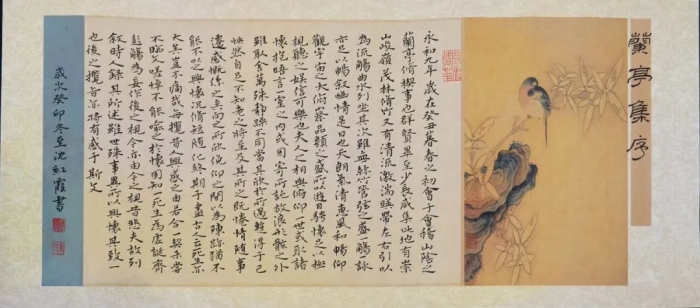 蘭亭集序
永和九年歲在癸丑暮春之初會于會稽山陰之
蘭亭脩稧事也群賢畢至少長咸集此地有崇
山峻嶺茂林脩竹又有清流激湍暎帶左右引以
為流觴曲水列坐其次雖無絲竹管弦之盛一觴一詠
亦足以暢敘幽情是日也天朗氣清惠風和暢仰
觀宇宙之大俯察品類之盛所以遊目騁懷足以極
視聽之娛信可樂也夫人之相與俯仰一世或取諸
懷抱悟言一室之內或因寄所託放浪形骸之外
雖取舍萬殊靜躁不同當其欣於所遇暫得于己
怏然自足不知老之將至及其所之既惓情隨事
遷感慨係之矣向之所欣俛仰之間以為陳跡猶不
能不以之興懷況脩短隨化終期于盡古人云死生亦
大矣豈不痛哉每攬昔人興感之由若合一契未嘗
不臨文嗟悼不能喻之於懷固知一死生為虛誕齊
彭殤為妄作後之視今亦由今之視昔悲夫故列
敘時人錄其所述雖世殊事異所以興懷其致一
也後之攬者亦將有感于斯文
歲次癸卯冬至沈紅霞書